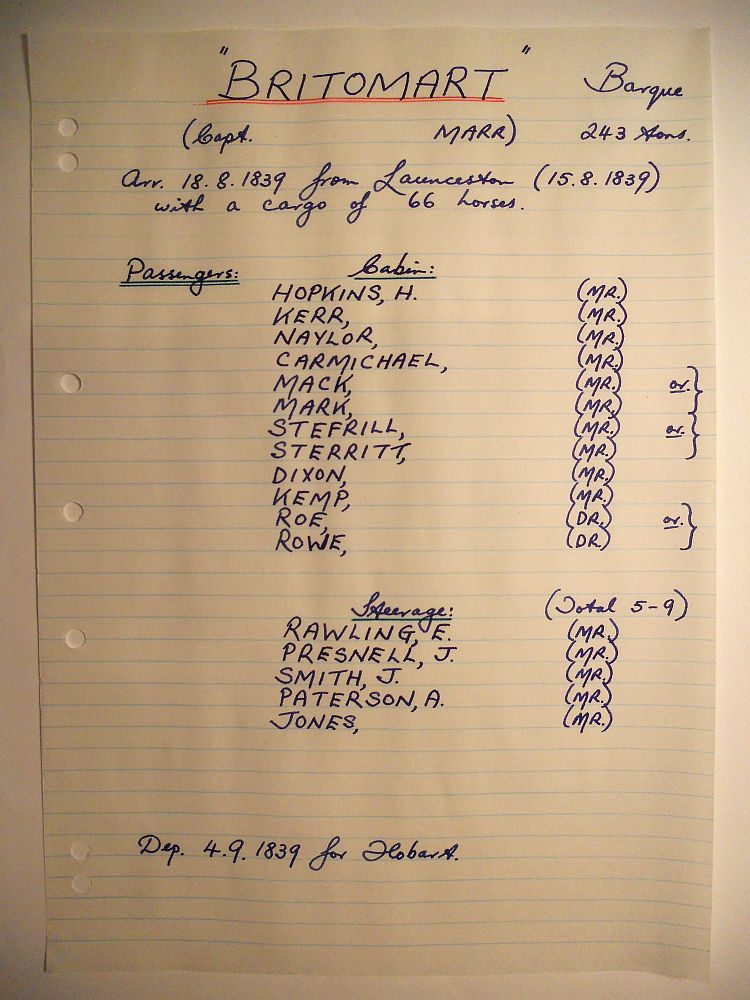 "BRITOMART" Barque
(Capt. MARR) 243 tons.
Arr. 18.8.1839 from Launceston (15.8.1839)
with a cargo of 66 horses.
Passengers: Cabin:
HOPKINS, H. (MR.)
KERR, (MR.)
NAYLOR, (MR.)
CARMICHAEL, (MR.)
MACK, (MR.) or. }
MARK, (MR.)
STEFRILL, (MR.) or. }
STERRITT, (MR.)
DIXON, (MR.)
KEMP, (MR.)
ROE, (DR.) or. }
ROWE, (DR.)
Steerage: (Total 5-9)
RAWLING, E. (MR.)
PRESNELL, J. (MR.)
SMITH, J. (MR.)
PATERSON, A. (MR.)
JONES, (MR.)
Dep. 4.9.1839 for Hobart.